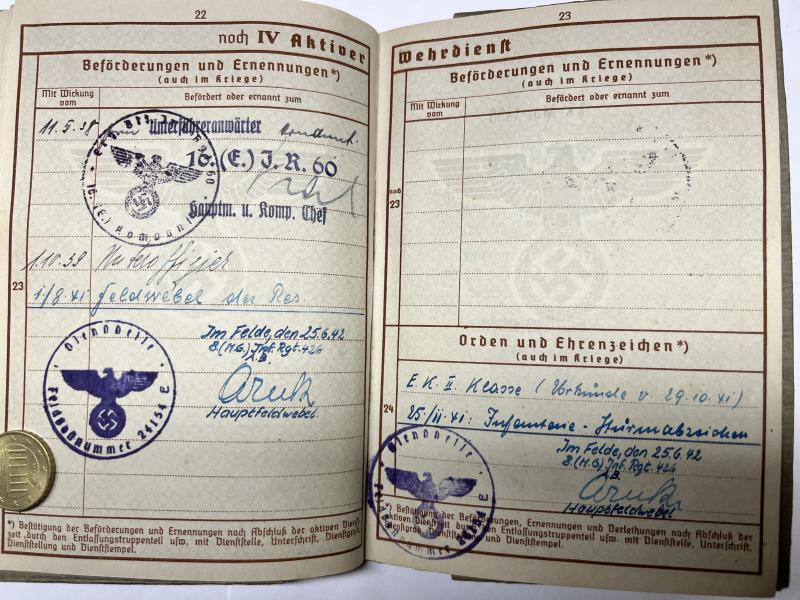 22
noch IV Aktiver
Beförderungen und Ernennungen*)
(auch im Kriege)
Mit Wirkung vom
Befördert oder ernannt zum
11.5.38
Unterführeranwärter
16. (E.) J. R. 60
Hauptm. u. Komp. Chef
1.10.39 Unteroffizier
23
1/8. XI Feldwebel der Res.
Dienststelle
Feldpostnummer 24154 E
Im Felde, den 25.6.42
8.(M.G.) Inf. Rgt. 426
I.B.
Hauptfeldwebel
*) Bestätigung der Beförderungen und Ernennungen nach Abschluß der aktiven Dienst-
zeit durch den Entlassungstruppenteil usw. mit Dienststelle, Unterschrift, Dienstgrad,
Dienststellung und Dienststempel.
23
Wehrdienst
Beförderungen und Ernennungen*)
(auch im Kriege)
Mit Wirkung vom
Befördert oder ernannt zum
noch
23
Orden und Ehrenzeichen*)
(auch im Kriege)
E. K. II. Klasse (Urkunde v. 29.10. XI)
24
25/11 XI: Infanterie-Sturmabzeichen
Im Felde, den 25.6.42
8.(M.G) Inf. Rgt. 426
I.B.
Hauptfeldwebel
Dienststelle
*) Bestätigung der Beförderungen, Ernennungen und Verleihungen nach Abschluß der
aktiven Dienstzeit durch den Entlassungstruppenteil usw. mit Dienststelle, Unterschrift,
Dienstgrad, Dienststellung und Dienststempel.